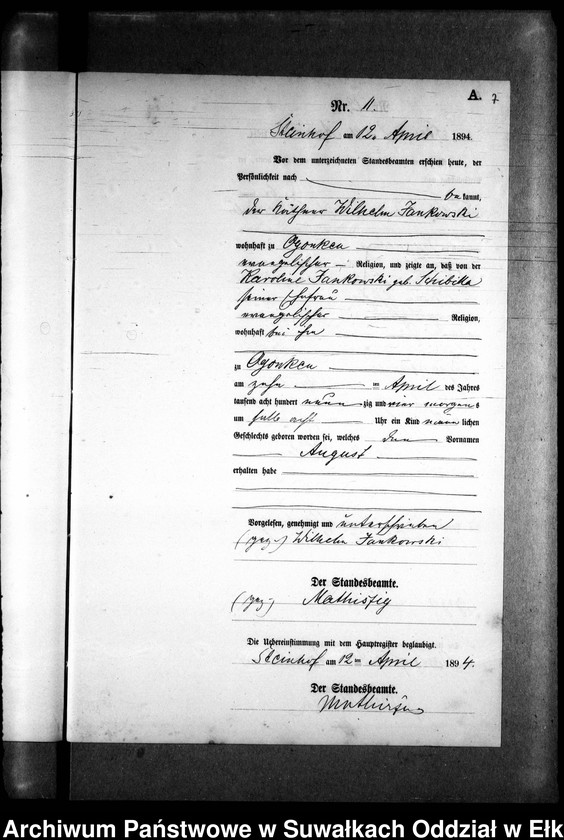 A. 7
Nr. 11.
Steinhof am 12. April 1894.
Vor dem unterzeichneten Standesbeamten erschien heute, der
Persönlichkeit nach be kannt,
der Käthner Wilhelm Jankowski
wohnhaft zu Ogonken
evangelischer Religion, und zeigte an, daß von der
Karoline Jankowski geb. Schibilla
seiner Ehefrau
evangelischer Religion,
wohnhaft bei ihm
zu Ogonken
am zehn ten April des Jahres
tausend acht hundert neun zig und vier morgen s
um halb acht Uhr ein Kind männ lichen
Geschlechts geboren worden sei, welches den Vornamen
August
erhalten habe
Vorgelesen, genehmigt und unterschrieben
(gez.) Wilhelm Jankowski
Der Standesbeamte.
(gez.)
Die Uebereinstimmung mit dem Hauptregister beglaubigt.
Steinhof am 12ten April 1894.
Der Standesbeamte.
Archiwum Państwowe w Suwałkach Oddział w Ełk